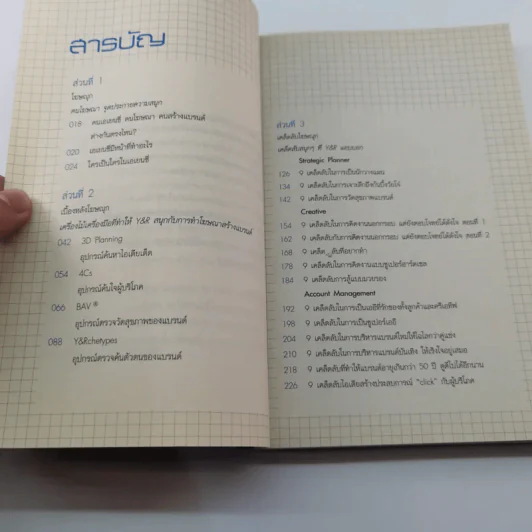 สารบัญ
ส่วนที่ 1
โฆษณุก
คนโฆษณา จุดประกายความสนุก
018 คนเอเยนซี่ คนโฆษณา คนสร้างแบรนด์
ต่างกันตรงไหน?
020 เอเยนซี่มีหน้าที่ทำอะไร
024 ใครเป็นใครในเอเยนซี่
ส่วนที่ 2
เบื้องหลังโฆษณุก
เครื่องไม้เครื่องมือที่ทำให้ Y&R สนุกกับการทำโฆษณาสร้างแบรนด์
042 3D Planning
อุปกรณ์ค้นหาไอเดียเด็ด
054 4Cs
อุปกรณ์ค้นใจผู้บริโภค
066 BAV ®
อุปกรณ์ตรวจวัดสุขภาพของแบรนด์
088 Y&Rchetypes
อุปกรณ์ตรวจค้นตัวตนของแบรนด์
ส่วนที่ 3
เคล็ดลับโฆษณุก
เคล็ดลับสนุกๆ ที่ Y&R
Strategic Planner
126 9 เคล็ดลับในการเป็นนักวางแผน
134 9 เคล็ดลับในการเจาะลึกอินไซด์
142 9 เคล็ดลับในการวัดสุขภาพแบรนด์
Creative
154 9 เคล็ดลับในการคิดงานนอกกรอบ แต่ยังตอบโจทย์ได้ดังใจ ตอนที่ 1
162 9 เคล็ดลับในการคิดงานนอกกรอบ แต่ยังตอบโจทย์ได้ดังใจ ตอนที่ 2
168 9
178 9 เคล็ดลับในการคิดงานแบบซูเปอร์ฮาร์ดเซล
184 9 เคล็ดลับการสู้แบบมวยรอง
Account Management
192 9 เคล็ดลับในการเป็นเออีที่รักของทั้งลูกค้าและครีเอทีฟ
198 9 เคล็ดลับในการเป็นซูเปอร์เออี
204 9 เคล็ดลับในการบริหารแบรนด์ใหม่ให้ไฉไลกว่าคู่แข่ง
210 9 เคล็ดลับในการบริหารแบรนด์บันเทิง ให้เริงใจอยู่เสมอ
218 9 เคล็ดลับที่ทำให้แบรนด์อายุเกินกว่า 50 ปี ดูดีไปได้อีกนาน
226 9 เคล็ดลับไอเดียสร้างประสบการณ์ "click" กับผู้บริโภค